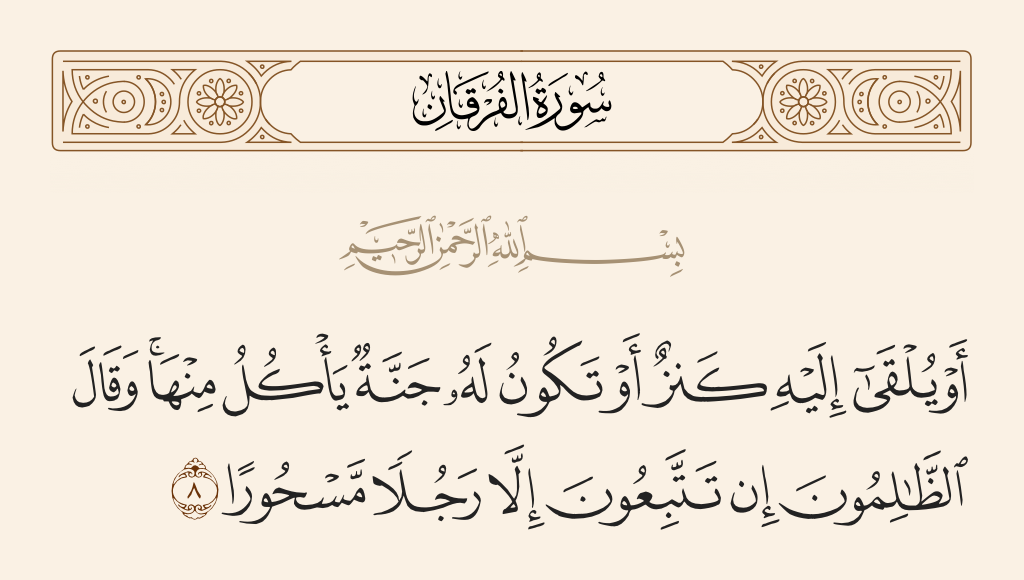 سُورَةُ الفُرْقَانِ
بِسْمِ ٱللَّهِ ٱلرَّحْمَٰنِ ٱلرَّحِيمِ
أَوْ يُلْقَىٰٓ إِلَيْهِ كَنزٌ أَوْ تَكُونُ لَهُۥ جَنَّةٌ يَأْكُلُ مِنْهَا ۚ وَقَالَ
ٱلظَّـٰلِمُونَ إِن تَتَّبِعُونَ إِلَّا رَجُلًا مَّسْحُورًا ٨